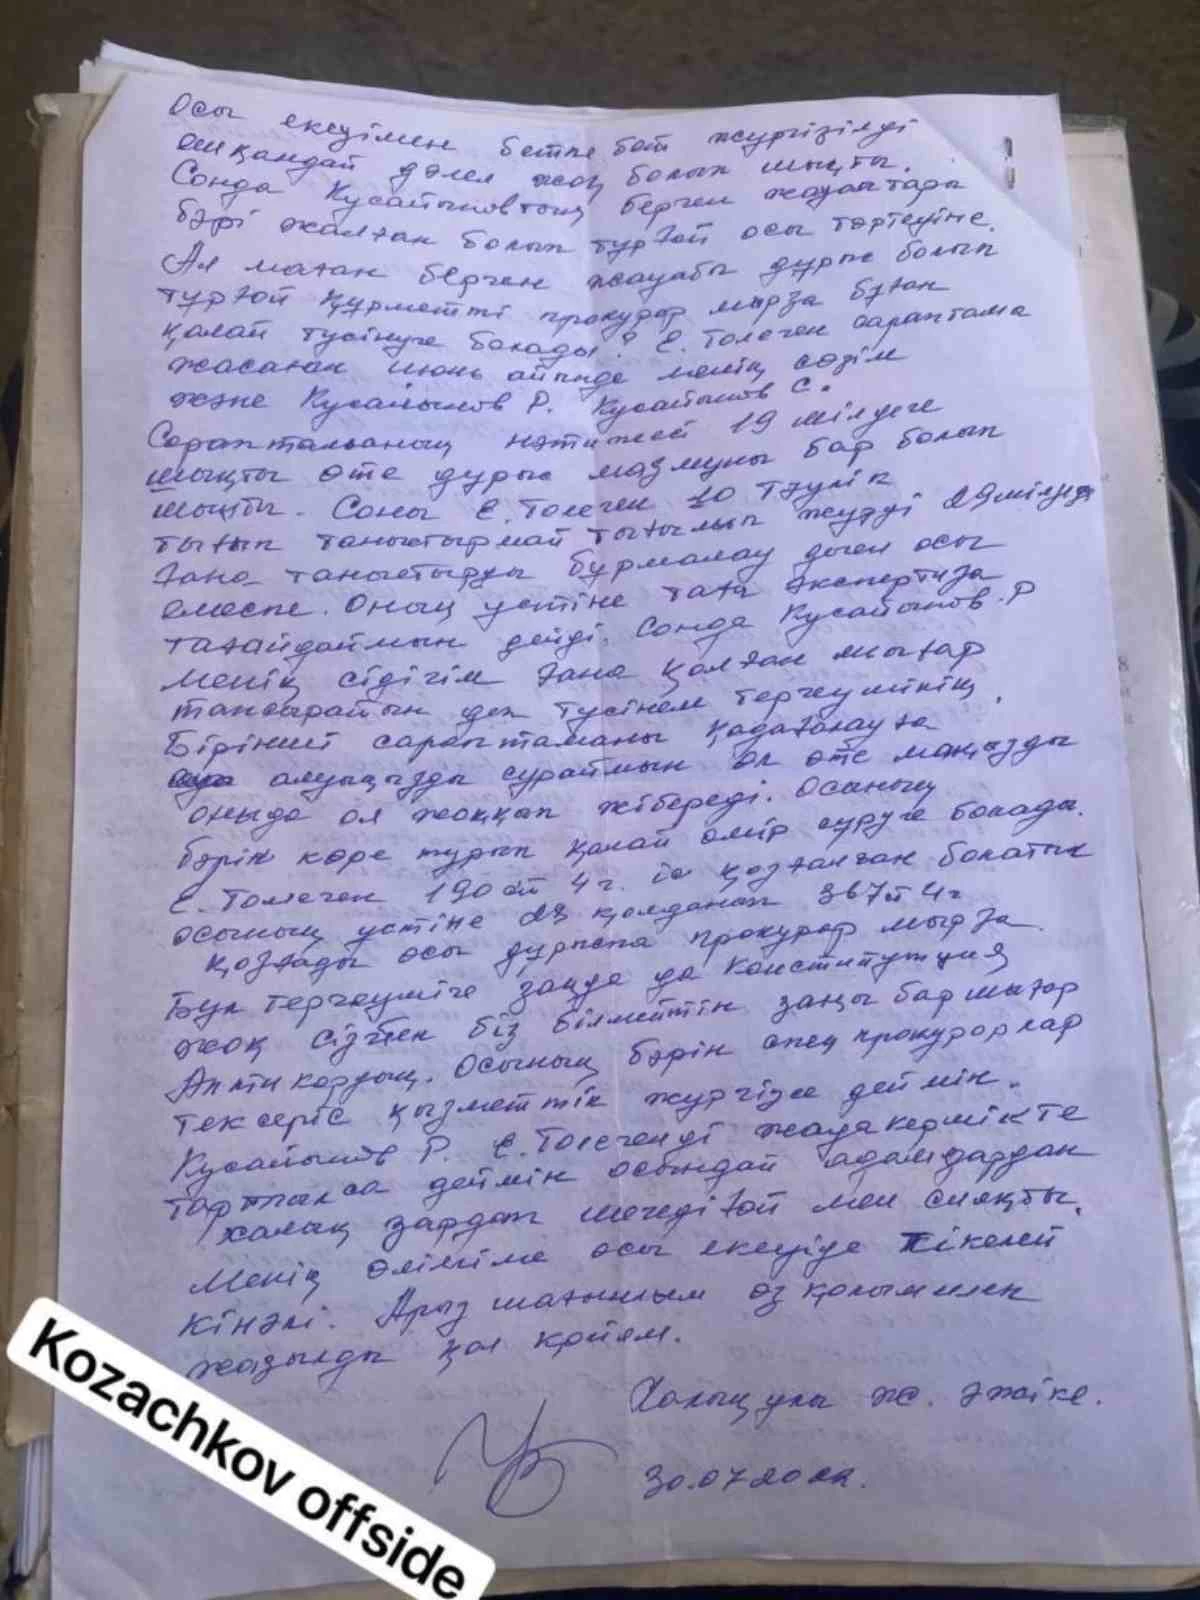 Осы екеуімен бетпе бет жүргізілді
ешқандай дәлел жоқ болып шықты.
Сонда Кусайыновтың берген жауаптары
бәрі жалған болып тұрғой осы тәртеуіне.
Ал маған берген жауабы дұрыс болып
тұрғой құрметті прокурор мырза бұған
қалай түсінуге болады? Е. Төлеген сараптама
жасаған июнь айында менің сөзім
және Кусайынов Р. Кусайынов С.
Сараптаманың нәтижесі 19 шілдеге
шықты өте дұрыс мазмұны бар болып
шықты. Соны Е. Төлеген 10 тәулік
тығып таныстырмай тығылып жүрді 29 шілдеде
ғана таныстырды бұрмалау деген осы
емеспе. Оның үстіне тағы экспертиза
тағайдаймын дейді. Сонда Кусайынов Р
менің сідігім ғана қалған шығар
тапсырайын деп түсінем тергеушінің
Бірінші сараптаманы қадағалауға
алуыңызды сұраймын ол өте маңызды
оныда ол жоққып жібереді. Осының
бәрін көре тұрып қалай өмір сүруге болады.
Е. Төлеген 190 бп 4 г. іс қозғалған болатын
осының үстіне қолданып 367 п 4 г
қозғады осы дұрыспа прокурор мырза
Бұл тергеушіге заңда да Конституция
жоқ сізбен біз білмейтін заңы бар шығар
Антикордың. Осының бәрін спец прокурорлар
тексеріс қызметтік жүргізсе деймін.
Кусайынов Р. Е. Төлегенді жауакершікте
тартылса деймін осындай адамдардан
халық зардап шегеді ғой мен сияқты.
Менің өліміме осы екеуіде тікелей
кінәлі. Арыз шағымым өз қолыммен
жазылды қол қойям.
Халықұлы Ж. Әжіке.
30.07.2022.
Kozachkov offside